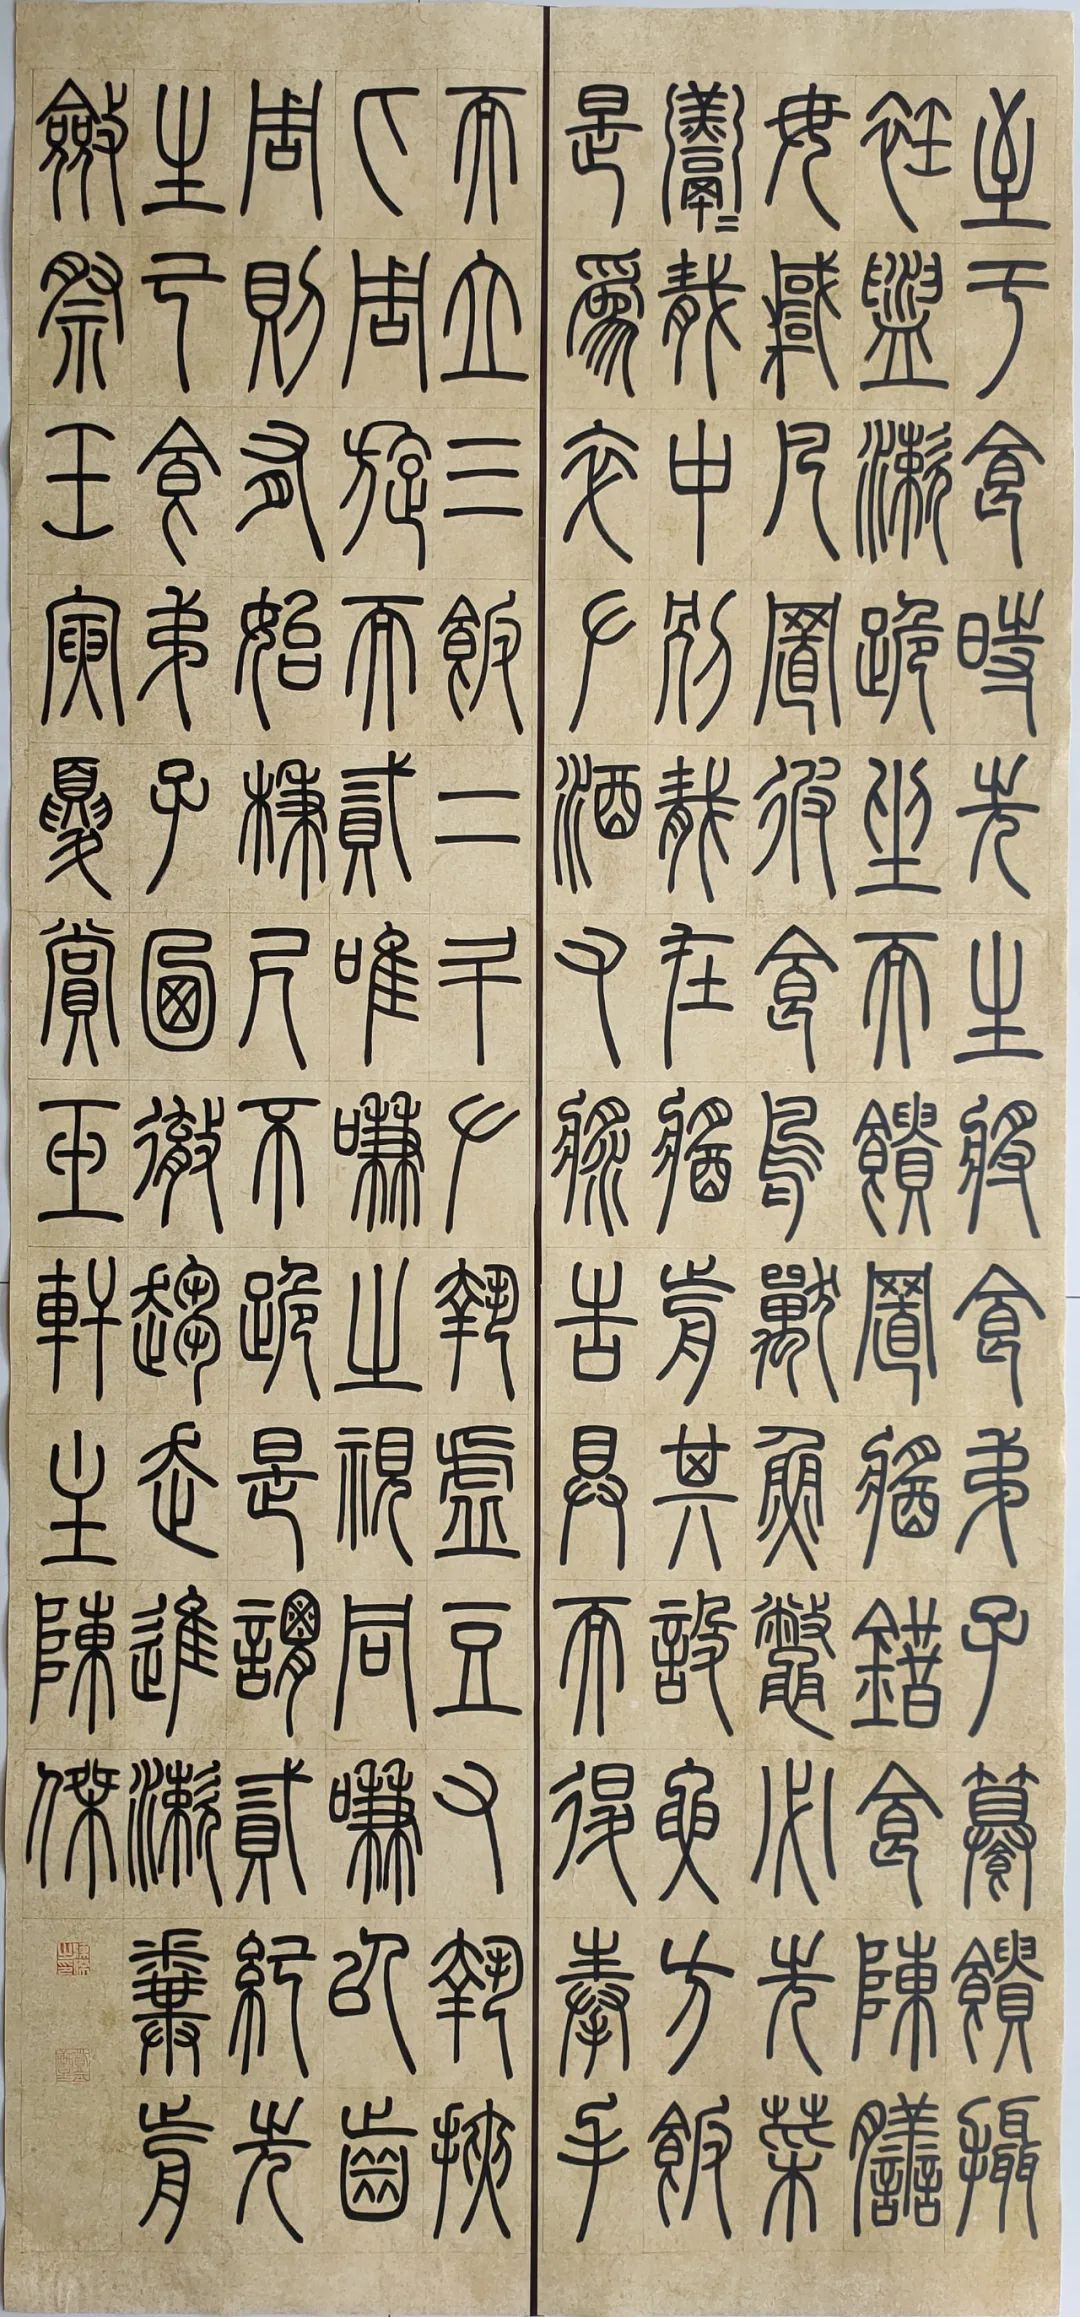 至于食時先生將食弟子饌饋攝
衽盥漱跪坐而饋置醬錯食陳膳
毋誖凡置彼食鳥獸魚鱉必先菜
羹〻胾中別胾在醬前其設要方飯
是爲卒左酒右漿告具而退奉手
而立三飯二斗左執虛豆右執挾
匕周旋而貳唯嗛之視同嗛以齒
周則有始柄尺不跪是謂貳紀先
生已食弟子乃徹趨走進漱糞前
斂祭壬寅夏賞玉軒主陳傑